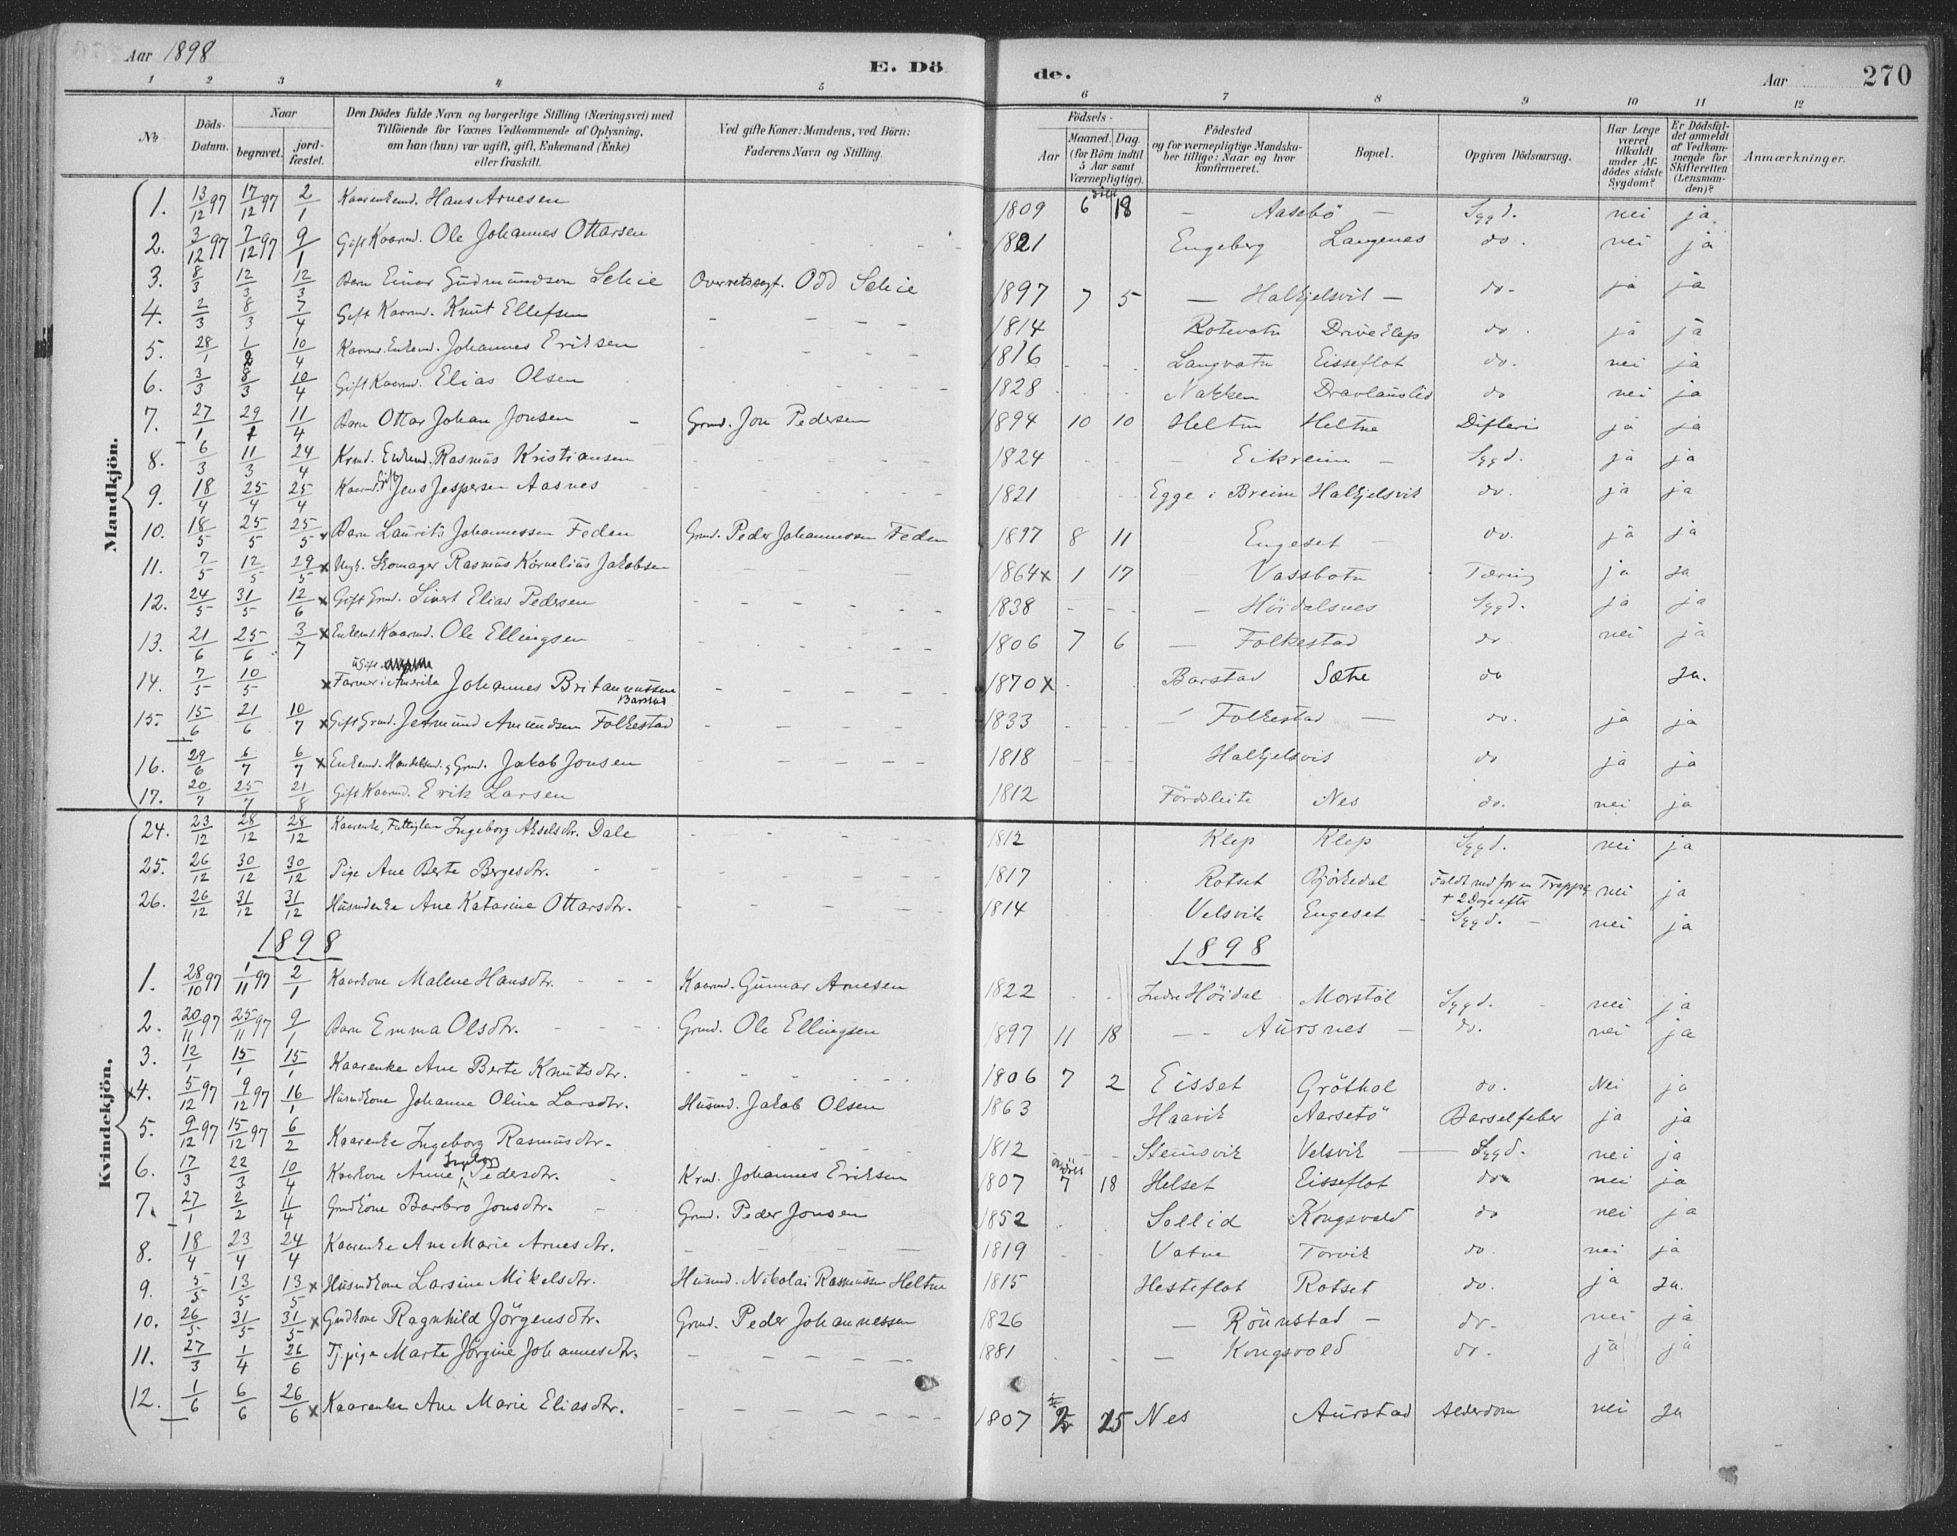 Aar 1898
E. Dö
de.
Aar
270
1 2 3 4 5 6 7 8 9 10 11 12
No.
Döds-Datum.
Naar
begravet.
jord-fæstet.
Den Dödes fulde Navn og borgerlige Stilling (Næringsvei) med
Tilföiende for Voxnes Vedkommende af Oplysning,
om han (hun) var ugift, gift, Enkemand (Enke)
eller fraskilt.
Ved gifte Koner: Mandens, ved Börn:
Faderens Navn og Stilling.
Födsels-
Aar
Maaned. Dag.
(for Börn indtil
5 Aar samt
Værnepligtige).
Födested
og for værnepligtige Mandska-
ber tillige: Naar og hvor
konfirmeret.
Bopæl.
Opgiven Dödsaarsag.
Har Læge
været
tilkaldt
under Af-
dödes sidste
Sygdom?
Er Dödsfal-
det anmeldt
af Vedkom-
mende for
Skifteretten
(Lensman-
den)?
Anmærkninger.
Mandkjön.
1. 13/12 97 17/12 97 2/1 Kaarenkemd. Hans Arnesen 1809 6 18 - Aasebö - Sygd. nei ja
2. 3/12 97 7/12 97 9/1 Gift Kaarmd. Ole Johannes Ottarsen 1821 Engeberg Langenes do. nei ja
3. 8/3 12/3 12/3 Barn Einar Gudmundson Schie Overretssagf. Odd Schie 1897 7 5 - Halkjelsvik - do. ja ja
4. 2/3 8/3 7/4 Gift Kaarmd. Knut Ellefsen 1814 Rotevatn Drive Elep do. ja ja
5. 28/1 1/2 10/4 Kaarmd. Enkemd. Johannes Eriksen 1816 Langvatn Eisseflot do. nei ja
6. 3/3 8/3 10/4 Gift Kaarmd. Elias Olsen 1828 Nakken Dravlauslid do nei ja
7. 27/1 29/1 11/4 Barn Ottar Johan Jonsen Grmd. Jon Pedersen 1894 10 10 Heltne Heltne Difteri ja ja
8. 6/3 11/3 24/4 Krmd. Enkemd. Rasmus Kristiansen 1824 Eikreim - Sygd. ja ja
9. 18/4 25/4 25/4 Kaarmd. Gift Jens Jespersen Aasnes 1821 Egge i Breim Halkjelsvik do. ja ja
10. 18/5 25/5 25/5 x Barn Laurits Johannessen Feden Grmd. Peder Johannessen Feden 1897 8 11 Engeset - do. ja ja
11. 7/5 12/5 29/5 x Ungk. Skomager Rasmus Kornelius Jakobsen 1864 x 1 17 - Vassbotn Tæring ja ja
12. 24/5 31/5 12/6 x Gift Grmd. Sivert Elias Pedersen 1838 - Höidalsnes Sygd. ja ja
13. 21/6 25/6 3/7 x Enkemd. Kaarmd. Ole Ellingsen 1806 7 6 - Folkestad do nei ja
14. 7/5 10/5 x ugift Farmer i Amerika Johannes Britanussen Barstad 1870 x Barstad Sæthe do ja.
15. 15/6 21/6 10/7 x Gift Grmd. Jetmund Amundsen Folkestad 1833 - Folkestad - do. ja ja
16. 29/6 6/7 6/7 x Enkemd. Handelsmd. og Grmd. Jakob Jonsen 1818 Halkjelsvik do ja ja
17. 20/7 25/7 21/8 Gift Kaarmd. Erik Larsen 1812 Fördsleite Nes do. nei ja
24. 23/12 28/12 28/12 Kaarenke, Fattiglem Ingeborg Akselsdtr. Dale 1812 Klep Klep Sygd. nei ja
25. 26/12 30/12 30/12 Pige Ane Berte Bergesdtr. 1817 Rotset Bjørkedal Faldt ned for en Trappe + 2 Dage efter nei ja
26. 26/12 31/12 31/12 Husmdenke Ane Katarine Ottarsdtr. 1814 Velsvik Engeset Sygd. - nei ja
1898 1898
Kvindekjön.
1. 28/10 97 1/11 97 2/1 Kaarkone Malene Hansdtr. Kaarmd. Gunnar Arnesen 1822 Indre Höidal Morstöl Sygd. nei ja
2. 20/11 97 25/11 97 9/1 Barn Emma Olsdtr. Grmd. Ole Ellingsen 1897 11 18 - Aursnes - do. nei ja
3. 12/1 15/1 15/1 Kaarenke Ane Berte Knutsdtr. 1806 7 2 Eisset Gröthol do. Nei ja
x4. 5/12 97 9/12 97 16/1 Husmdkone Johanne Oline Larsdtr. Husmd. Jakob Olsen 1863 Haavik Aarsetö Barselfeber ja ja
5. 9/12 97 15/12 97 6/2 Kaarenke Ingeborg Rasmusdtr. 1812 Steinsvik Velsvik Sygd. nei ja
6. 17/3 22/3 10/4 Kaarkone Anne Ingeborg Pedersdtr. Krmd. Johannes Eriksen 1807 7 18 Helset Eisseflot do nei ja
7. 27/1 2/2 11/4 Grmdkone Barbro Jonsdtr. Grmd. Peder Jonsen 1852 Sollid Kongsvold do nei ja
8. 18/4 23/4 24/4 Kaarenke Ane Marie Arnesdtr. 1819 Vatne Torvik do. nei ja
9. 5/5 13/5 13/5 x Husmdkone Larsine Mikelsdtr. Husmd. Nikolai Rasmussen Heltne 1815 Hesteflot Rotset do. ja ja.
10. 26/5 31/5 31/5 x Gmdkone Ragnhild Jörgensdtr. Grmd. Peder Johannessen 1826 - Rönnstad - do. nei ja
11. 27/3 1/4 26/6 Tj.pige Marte Jörgine Johannesdtr. 1881 - Kongsvold do. ja ja
12. 1/6 6/6 26/6 x Kaarenke Ane Marie Eliasdtr. 1807 25 Nes Aurstad Alderdom nei ja